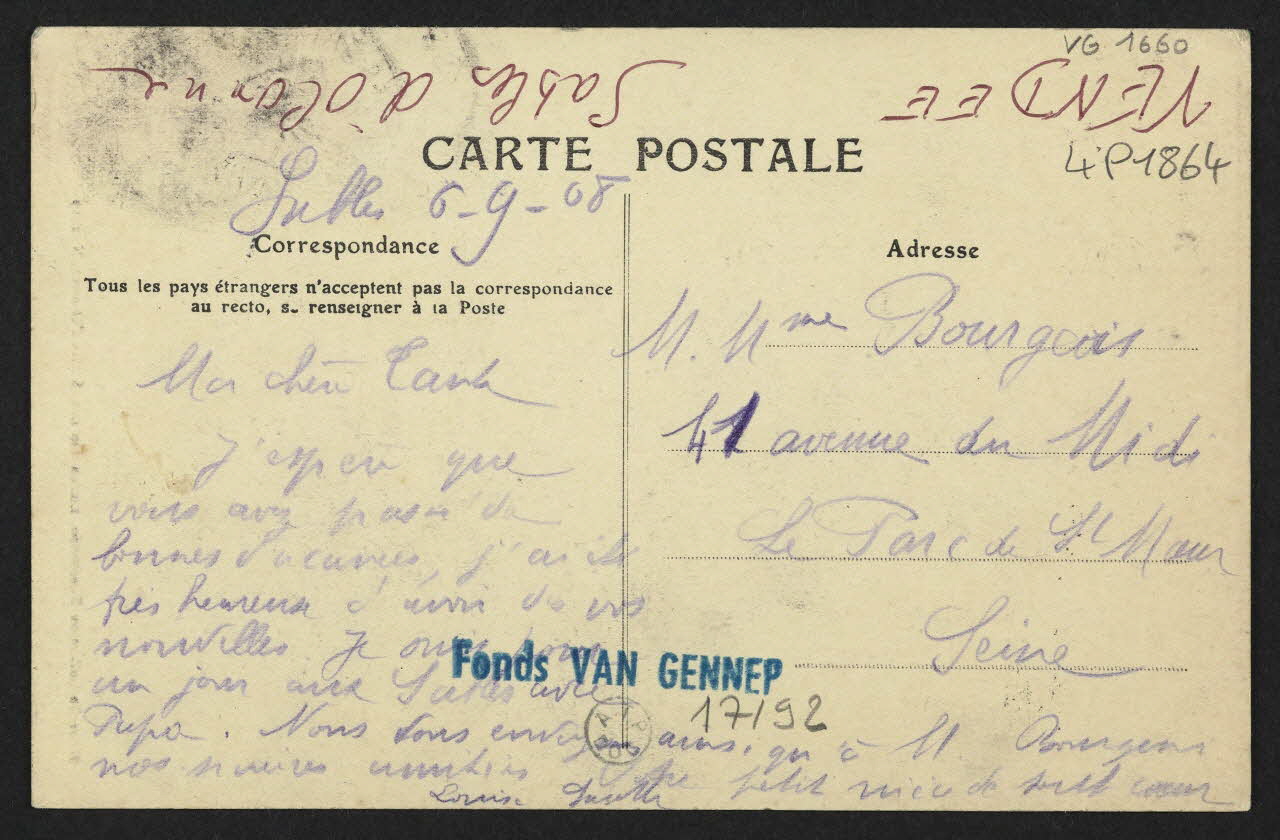 VG 1660
VENDEE
Sables d'Olonne
CARTE POSTALE
4°P1864
Sables 6-9-08
Correspondance
Adresse
Tous les pays étrangers n'acceptent pas la correspondance
au recto, se renseigner à la Poste
M. Mme Bourgeois
41 avenue du Midi
Le Parc de St Maur
Seine
Ma chère Tante
J'espère que
vous avez passé de
bonnes vacances, j'ai été
très heureuse d'avoir de vos
nouvelles Je suis pour
un jour aux Sables avec
Papa. Nous vous envoyons ainsi qu'à M. Bourgeois
nos amitiés
petite nièce de tout cœur
Louise
Fonds VAN GENNEP
17192
ATP